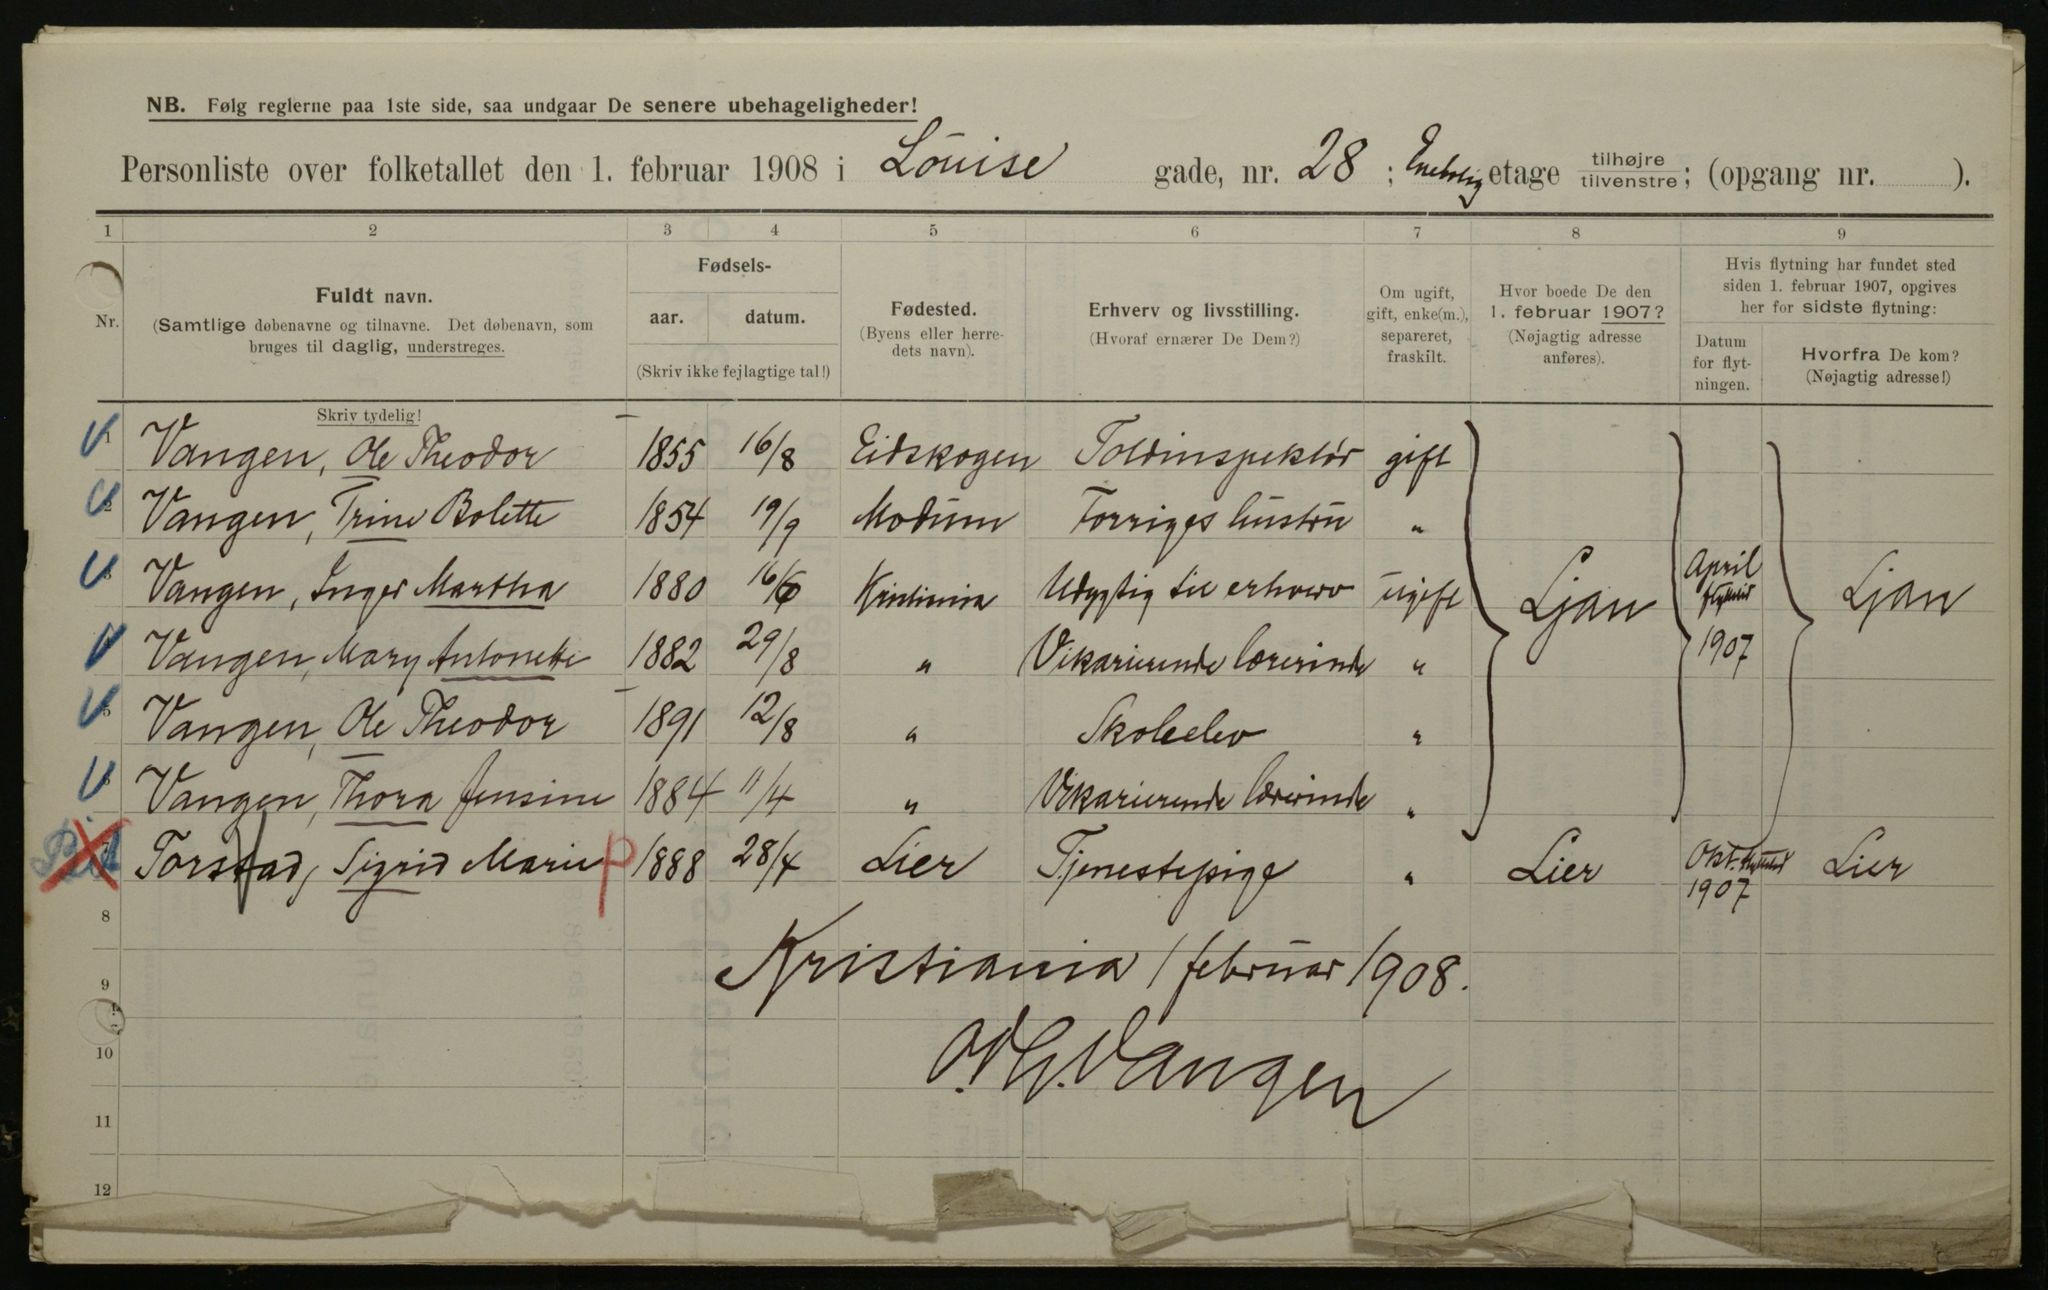 NB. Følg reglerne paa 1ste side, saa undgaar De senere ubehageligheder!
Personliste over folketallet den 1. februar 1908 i Louise gade, nr. 28 ; Enebolig etage tilhøjre / tilvenstre ; (opgang nr. ).
1 2 3 4 5 6 7 8 9
Nr. Fuldt navn. (Samtlige døbenavne og tilnavne. Det døbenavn, som bruges til daglig, understreges.
Fødsels- aar. datum. (Skriv ikke fejlagtige tal!)
Fødested. (Byens eller herredets navn).
Erhverv og livsstilling. (Hvoraf ernærer De Dem?)
Om ugift, gift, enke(m.), separeret, fraskilt.
Hvor boede De den 1. februar 1907? (Nøjagtig adresse anføres).
Hvis flytning har fundet sted siden 1. februar 1907, opgives her for sidste flytning:
Datum for flytningen. Hvorfra De kom? (Nøjagtig adresse!)
Skriv tydelig!
1 Vangen, Ole Theodor 1855 16/8 Eidskogen Toldinspektør gift
2 Vangen, Trine Bolette 1854 19/9 Modum Forriges hustru "
3 Vangen, Inger Martha 1880 16/6 Kristiania Udygtig til erhverv ugift Ljan April flyttetid 1907 Ljan
4 Vangen, Mary Antonette 1882 29/8 " Vikarierende lærerinde "
5 Vangen, Ole Theodor 1891 12/8 " Skoleelev "
6 Vangen, Thora Jensine 1884 11/4 " Vikarierende lærerinde "
7 Torstad, Sigrid Marie p 1888 28/4 Lier Tjenestepige " Lier Okt. flyttetid 1907 Lier
8
Kristiania 1 februar 1908.
9
10
O.Th.Vangen
11
12